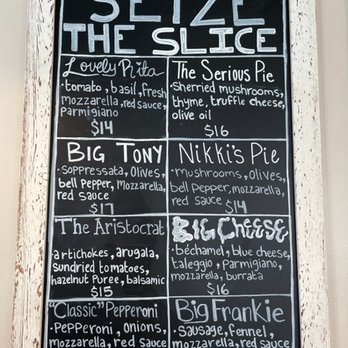 SEIZE
THE SLICE
Lovely Rita
•tomato, basil, fresh
mozzarella, red sauce,
Parmigiano
$14
The Serious Pie
•Sherried mushrooms,
thyme, truffle cheese,
olive oil
$16
BIG TONY
•Soppressata, Olives,
bell Pepper, Mozzarella,
red sauce
$17
Nikki's Pie
•mushrooms, olives,
bell pepper, mozzarella,
red sauce
$14
The Aristocrat
artichokes, arugala,
sundried tomatoes,
hazelnut Puree, balsamic
$15
BIG CHEESE
•béchamel, blue cheese,
taleggio, Parmigiano,
mozzarella, burrata
$16
"Classic" Pepperoni
•Pepperoni, onions,
mozzarella, red sauce
Big Frankie
•Sausage, fennel,
Mozzarella, red sauce